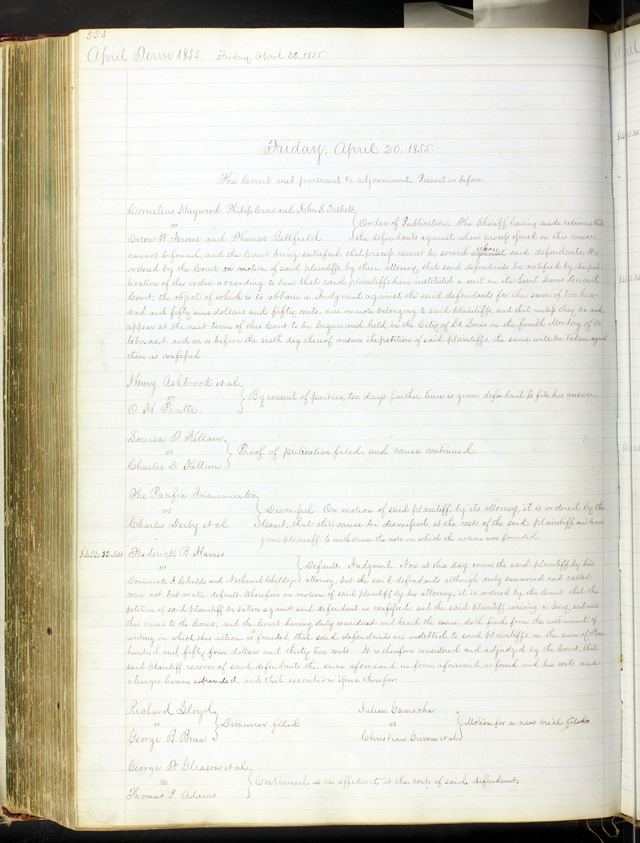 553
April Term 1855. Friday April 20. 1855
Friday, April 20. 1855.
The Court met pursuant to adjournment. Present as before
Cornelius Haywood, Philip Crow and John S. Talbott,
vs
Order of Publication. The Sheriff having made return that
Orson W. Jerome and Thomas Bellfield
the defendants against whom process issued in this cause
cannot be found, and the Court being satisfied that process cannot be served upon said defendants. It is
ordered by the Court, on motion of said plaintiffs by their attorney, that said defendants be notified by the pub
lication of this order, according to law that said plaintiffs have instituted a suit in the Saint Louis
Court, the object of which is to obtain a Judgment against the said defendants for the sum of two hun
dred and fifty nine dollars and fifty cents, due on note belonging to said plaintiffs and that unless they be and
appear at the next term of this Court to be begun and held in the City of St. Louis on the fourth Monday of Oc
tober next, and on or before the sixth day thereof answer the petition of said plaintiffs, the same will be taken against
them as confessed
Henry Ashbrook et al,
vs
By consent of parties, ten days further time is given defendant to file his answer.
O. N. Pratte.
Louisa D. Kellam,
vs
Proof of publication filed, and cause continued
Charles D. Kellam
The Pacific Insurance Co,
vs
Dismissal. On motion of said plaintiff by its attorney, it is ordered by the
Charles Derby et al
Court, that this cause be dismissed, at the costs of the said plaintiff, and leave
given plaintiff to withdraw the note on which the action was founded
$454.32
Frederick B.
vs
Default. Judgment. Now at this day comes the said plaintiff by his
Dominick J. Childs and Nathaniel Childs jr
attorney, but the said defendants although duly summoned and called
come not but make default. Wherefore on motion of said plaintiff by his attorney, it is ordered by the Court that the
petition of said plaintiff be taken against said defendant as confessed and the said plaintiff waiving a Jury, submits
this cause to the Court, and the Court having duly considered and heard the same, doth find from the instrument of
writing on which this action is founded that said defendants are indebted to said plaintiff in the sum of four
hundred and fifty four dollars and thirty two cents. It is therefore considered and adjudged by the Court, that
said plaintiff recover of said defendants the sum aforesaid in form aforesaid, as found and his costs and
charges herein expended, and that execution issue therefor.
Richard Lloyd,
vs
Demurrer filed
George R. Price
Julien Gamache
vs
Motion for a new trial filed
Christian et al
George D. Gleason et al.
vs
Continued as on affidavit, at the costs of said defendant.
Thomas F. Adams